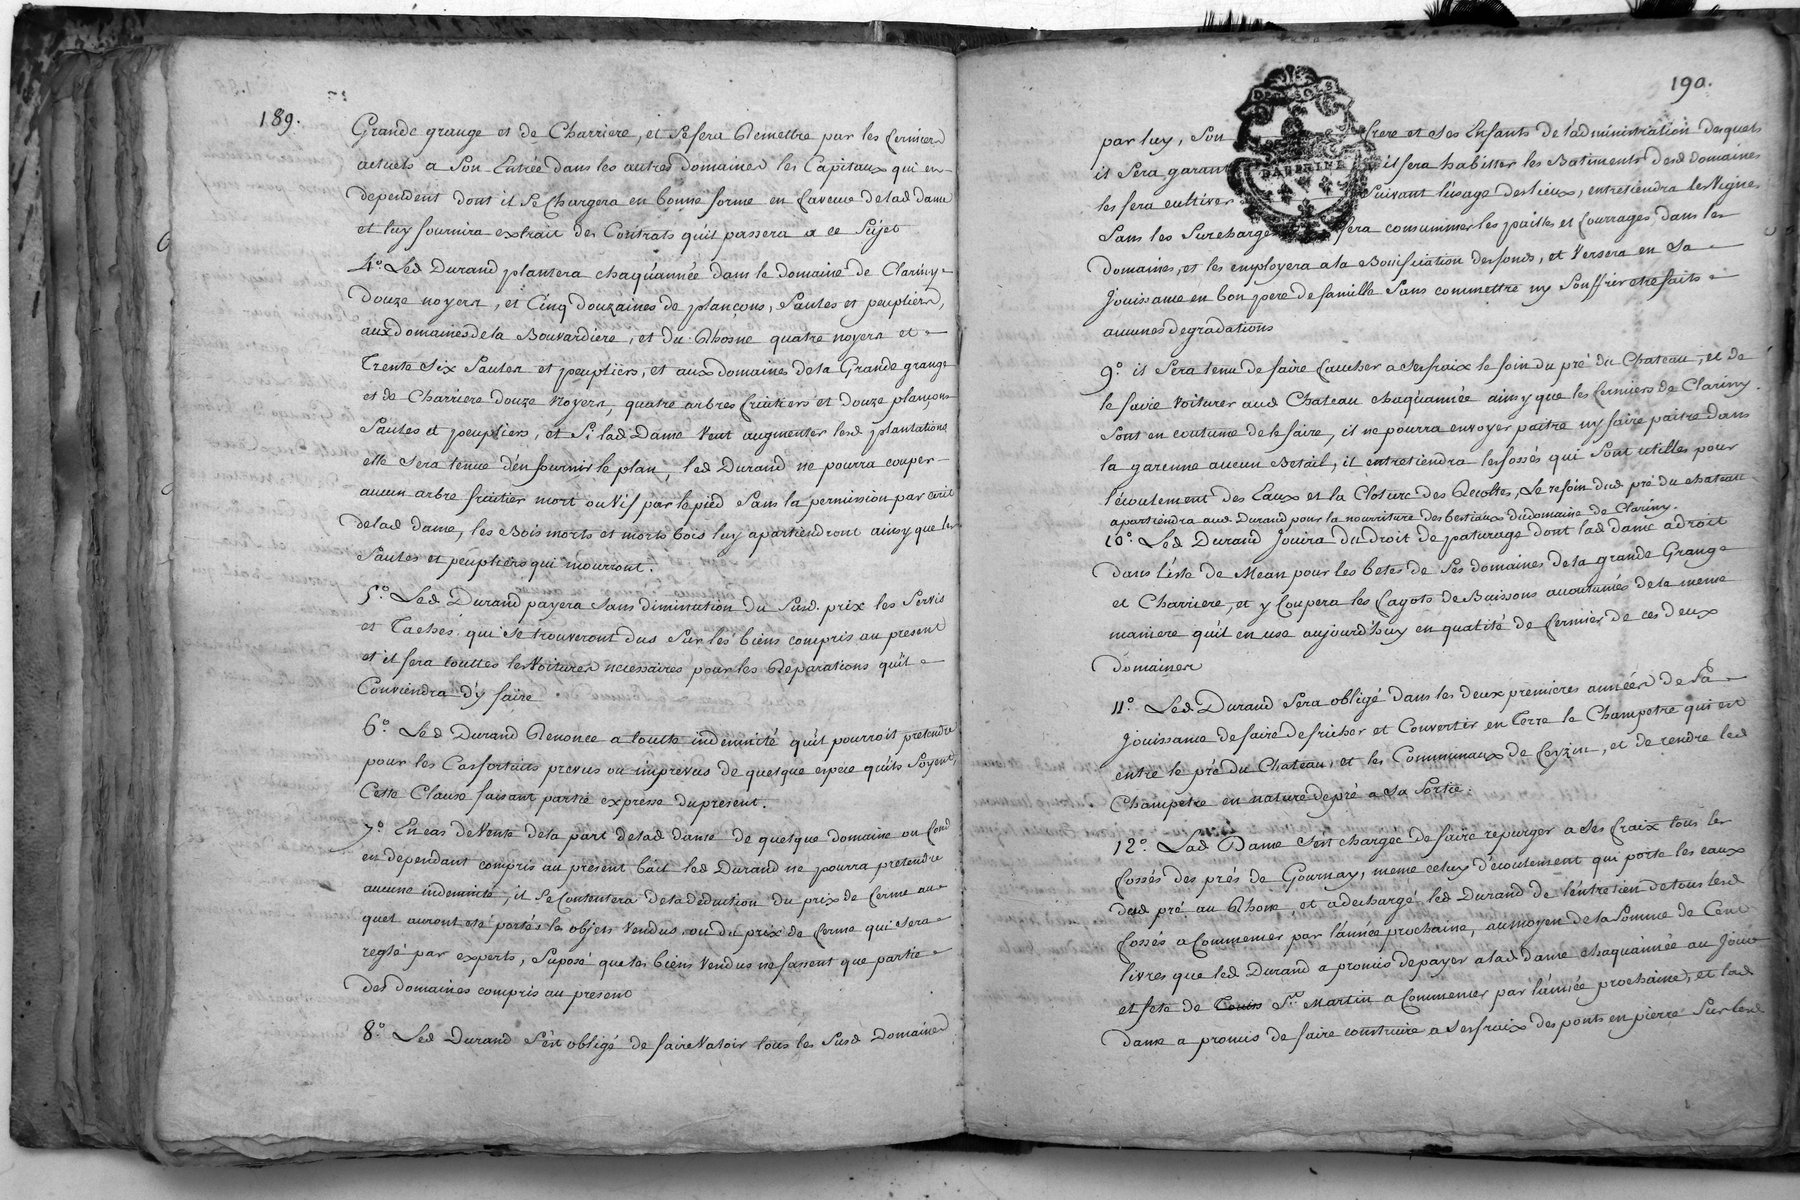 189.
Grande grange et de Charriere, et se fera Remettre par les fermiers
actuels a son Entrée dans les autres domaines les Capitaux qui en
dependent dont il se Chargera en bonne forme en faveur de lad dame
et luy fournira extrait des Contrats qu'il passera a ce sujet
4.° Led Durand plantera chaqu'année dans le domaine de Clariny
douze noyers, et Cinq douzaines de plançons, Saules et peupliers,
aux domaines de la Bouvardiere, et du Rhosne quatre noyers et
Trente six Saules et peupliers, et aux domaines de la Grande grange
et de Charriere douze Noyers, quatre arbres fruitiers et douze plançons
Saules et peupliers, et Si lad Dame veut augmenter lesd plantations
elle sera tenue d'en fournir le plan, led Durand ne pourra couper
aucun arbre fruitier mort ou vif par le pied Sans la permission par ecrit
de lad dame, les Bois morts et morts bois luy apartiendront ainsy que les
Saules et peupliers qui mourront.
5.° Led Durand payera sans diminution du Susd. prix les Servis
et Taches qui se trouveront dus sur les biens compris au present
et il fera touttes les Voitures necessaires pour les Reparations qu'il
Conviendra d'y faire
6.° Led Durand Renonce a toutte indemnité qu'il pourroit pretendre
pour les Cas fortuits prevus ou imprevus de quelque espece qu'ils soyent,
Cette Clause faisant partie expresse du present.
7.° En cas de Vente de la part de lad dame de quelque domaine ou fond
en dependant compris au present bail led Durand ne pourra pretendre
aucune indemnité, il se Contentera de la déduction du prix de ferme au
quel auront été portés les objets vendus, ou du prix de ferme qui sera
reglé par experts, Suposé que les biens vendus ne fassent que partie
des domaines compris au present
8.° Led Durand s'est obligé de faire Valoir tous les Susd Domaines
190.
DEUX SOLS
DAUPHINÉ
par luy, Son frere et ses Enfants de l'administration desquels
il sera garant il fera habitter les Batiments desd domaines
les fera cultiver Suivant l'usage des lieux, entretiendra les Vignes
Sans les Surcharger fera consummer les pailles et fourrages dans les
domaines, et les employera a la Bonification des fonds, et Versera en sa
Jouissance en bon pere de famille Sans commettre ny Souffrir etre faits
aucunes degradations
9.° il sera tenu de faire faucher a ses fraix le foin du pré du Chateau, et de
le faire voiturer aud Chateau chaqu'année ainsy que les fermiers de Clariny
Sont en coutume de le faire, il ne pourra envoyer paitre ny faire paitre dans
la garenne aucun Betail, il entretiendra les fossés qui Sont utilles pour
l'écoulement des Eaux et la Closture des Recoltes, Le refoin dud pré du chateau
apartiendra aud Durand pour la nourriture des bestiaux du domaine de Clariny.
10.° Led Durand Jouira du droit de paturage dont lad dame a droit
dans l'isle de Mean pour les betes de Ses domaines de la grande Grange
et Charriere, et y Coupera les fagots de Buissons accoutumés de la meme
maniere qu'il en use aujourd'huy en qualité de fermier de ces deux
domaines
11.° Led Durand Sera obligé dans les deux premieres années de Sa
Jouissance de faire defricher et Convertir en Terre le Champetre qui est
entre le pré du Chateau, et les Communaux de Feyzin, et de rendre led
Champetre en nature de pré a sa Sortie.
12.° Lad Dame s'est chargée de faire repurger a ses fraix tous les
fossés des prés de Gournay, meme celuy d'écoulement qui porte les eaux
dud pré au Rhone, et a dechargé led Durand de l'entretien de tous lesd
fossés a Commencer par l'année prochaine, au moyen de la Somme de Cent
livres que led Durand a promis de payer a lad dame chaqu'année au Jour
et fete de St. Martin a Commencer par l'année prochaine, et lad
dame a promis de faire construire a ses fraix des ponts en pierre Sur lesd